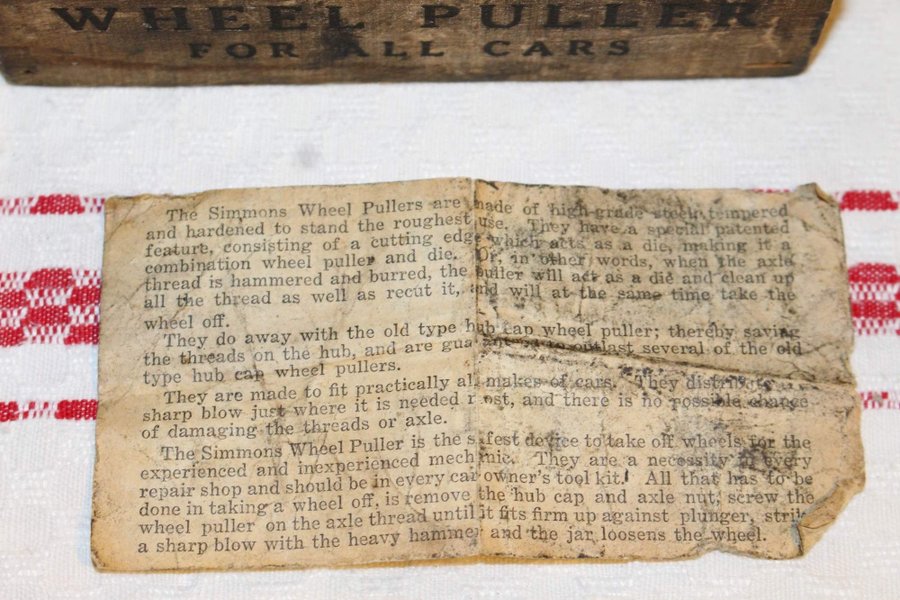 WHEEL PULLER
FOR ALL CARS
The Simmons Wheel Pullers are made of high-grade steel, tempered
and hardened to stand the roughest use. They have a special patented
feature, consisting of a cutting edge which acts as a die, making it a
combination wheel puller and die. Or, in other words, when the axle
thread is hammered and burred, the puller will act as a die and clean up
all the thread as well as recut it, and will at the same time take the
wheel off.
They do away with the old type hub cap wheel puller; thereby saving
the threads on the hub, and are guaranteed to outlast several of the old
type hub cap wheel pullers.
They are made to fit practically all makes of cars. They distribute a
sharp blow just where it is needed most, and there is no possible chance
of damaging the threads or axle.
The Simmons Wheel Puller is the safest device to take off wheels for the
experienced and inexperienced mechanic. They are a necessity in every
repair shop and should be in every car owner's tool kit. All that has to be
done in taking a wheel off, is remove the hub cap and axle nut, screw the
wheel puller on the axle thread until it fits firm up against plunger, strike
a sharp blow with the heavy hammer and the jar loosens the wheel.